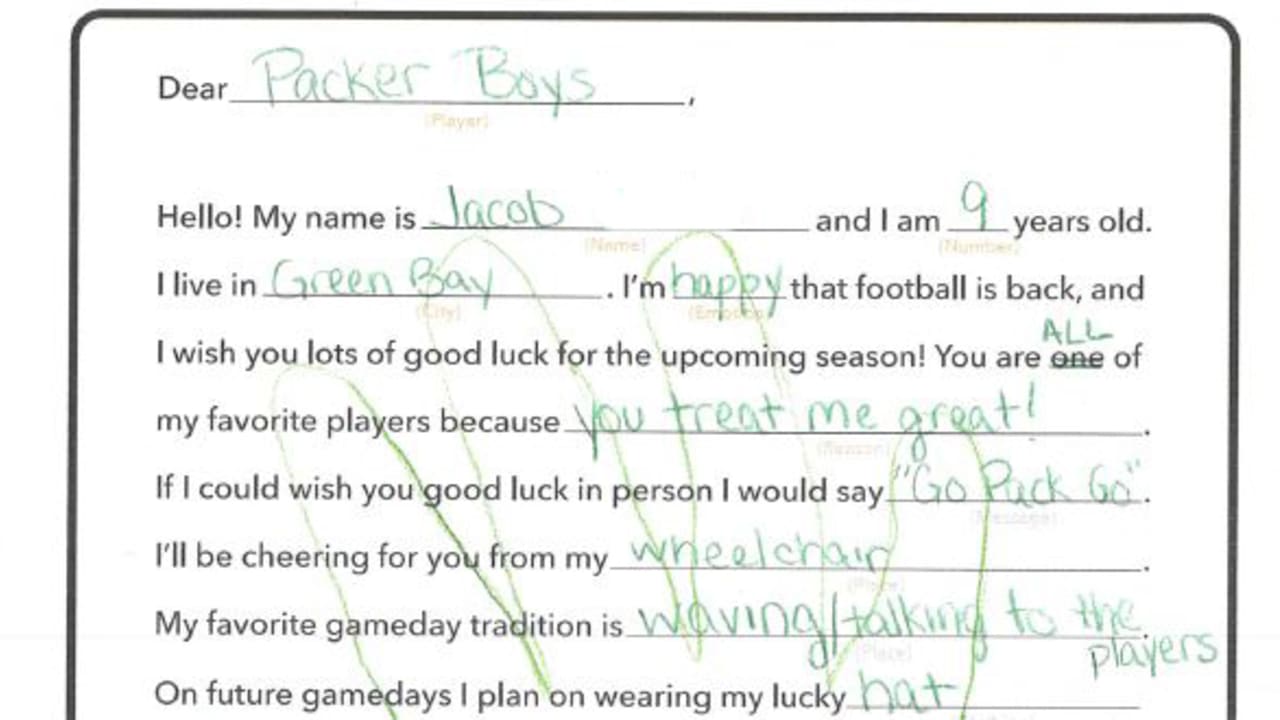 Dear Packer Boys,
(Player)
Hello! My name is Jacob and I am 9 years old.
(Name) (Number)
I live in Green Bay. I'm happy that football is back, and
(City) (Emotion)
ALL
I wish you lots of good luck for the upcoming season! You are one of
my favorite players because you treat me great!.
(Reason)
If I could wish you good luck in person I would say "Go Pack Go".
(Message)
I'll be cheering for you from my wheelchair.
(Place)
My favorite gameday tradition is waving/talking to the.
players
(Place)
On future gamedays I plan on wearing my lucky hat